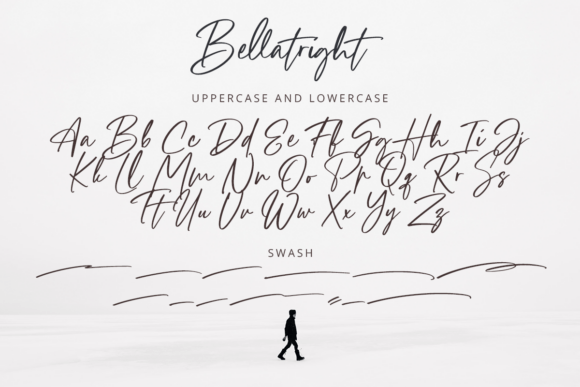 Bellatright
UPPERCASE AND LOWERCASE
Aa Bb Cc Dd Ee Ff Gg Hh Ii Jj
Kk Ll Mm Nn Oo Pp Qq Rr Ss
Tt Uu Vv Ww Xx Yy Zz
SWASH